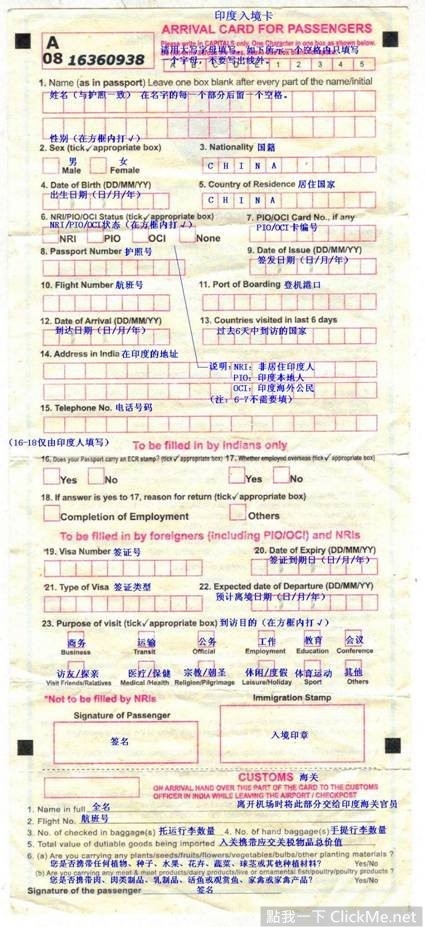 印度入境卡
ARRIVAL CARD FOR PASSENGERS
A
08 16360938
Please write in CAPITALS only. One Character in one box as shown below.
请用大写字母填写。如下所示，一个空格内只填写
一个字母，不要写出线外。
A B C D E 1 2 3 4 5
1. Name (as in passport) Leave one box blank after every part of the name/initial
姓名（与护照一致） 在名字的每一个部分后留一个空格。
性别（在方框内打√）
2. Sex (tick√appropriate box) 3. Nationality 国籍
男 女
Male Female CHINA
4. Date of Birth (DD/MM/YY) 5. Country of Residence 居住国家
出生日期（日/月/年） CHINA
6. NRI/PIO/OCI Status (tick√appropriate box) 7. PIO/OCI Card No., if any
NRI/PIO/OCI状态（在方框内打√） PIO/OCI卡编号
NRI PIO OCI None
8. Passport Number 护照号 9. Date of Issue (DD/MM/YY)
签发日期（日/月/年）
10. Flight Number 航班号 11. Port of Boarding 登机港口
12. Date of Arrival (DD/MM/YY) 13. Countries visited in last 6 days
到达日期（日/月/年） 过去6天中到访的国家
14. Address in India 在印度的地址
说明：NRI：非居住印度人
PIO：印度本地人
OCI：印度海外公民
（注：6-7不需要填）
15. Telephone No. 电话号码
(16-18仅由印度人填写)
To be filled in by Indians only
16. Does your Passport carry an ECR stamp? (tick√appropriate box) 17. Whether employed overseas (tick√appropriate box)
Yes No Yes No
18. If answer is yes to 17, reason for return (tick√appropriate box)
Completion of Employment Others
To be filled in by foreigners (including PIO/OCI) and NRIs
19. Visa Number 签证号 20. Date of Expiry (DD/MM/YY)
签证到期日（日/月/年）
21. Type of Visa 签证类型 22. Expected date of Departure (DD/MM/YY)
预计离境日期（日/月/年）
23. Purpose of visit (tick√appropriate box) 到访目的（在方框内打√）
商务 运输 公务 工作 教育 会议
Business Transit Official Employment Education Conference
访友/探亲 医疗/保健 宗教/朝圣 休闲/度假 体育运动 其他
Visit Friends/Relatives Medical /Health Religion/Pilgrimage Leisure/Holiday Sport Others
*Not to be filled by NRIs Immigration Stamp
Signature of Passenger
签名 入境印章
CUSTOMS 海关
ON ARRIVAL HAND OVER THIS PART OF THE CARD TO THE CUSTOMS
OFFICER IN INDIA WHILE LEAVING THE AIRPORT / CHECKPOST
离开机场时将此部分交给印度海关官员
1. Name in full 全名
2. Flight No. 航班号
3. No. of checked in baggage(s) 托运行李数量 4. No. of hand baggage(s) 手提行李数量
5. Total value of dutiable goods being imported 入关携带应交关税物品总价值
6. (a) Are you carrying any plants/seeds/fruits/flowers/vegetables/bulbs/other planting materials ?
您是否携带任何植物、种子、水果、花卉、蔬菜、球茎或其他种植材料？ Yes/No
(b) Are you carrying any meat & meat products/dairy products/live or ornamental fish/poultry/poultry products ?
您是否携带肉、肉类制品、乳制品、活鱼或观赏鱼、家禽或家禽产品？ Yes/No
Signature of the passenger 签名
點我一下 ClickMe.net